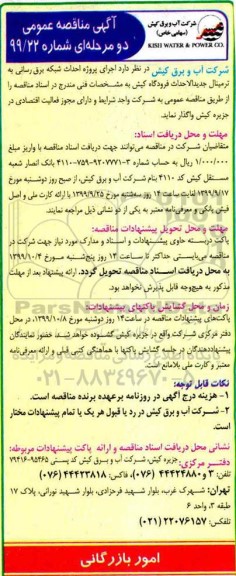 آگهی مناقصه عمومی
دو مرحله‌ای شماره ۹۹/۲۲
شرکت آب و برق کیش
(سهامی خاص)
KISH WATER & POWER CO.
شرکت آب و برق کیش در نظر دارد اجرای پروژه احداث شبکه برق رسانی به
ترمینال جدیدالاحداث فرودگاه کیش به مشخصات فنی مندرج در اسناد مناقصه را
از طریق مناقصه عمومی به شرکت واجد شرایط و دارای مجوز فعالیت اقتصادی در
جزیره کیش واگذار نماید.
مهلت و محل دریافت اسناد:
متقاضیان شرکت در مناقصه می‌توانند جهت دریافت اسناد مناقصه با واریز مبلغ
۱/۰۰۰/۰۰۰ ریال به حساب شماره ۳-۹۲۰۷۷۷۱-۷۵۹-۴۱۱۰ بانک انصار شعبه
مستقل کیش کد ۴۱۱۰ بنام شرکت آب و برق کیش، از صبح روز دوشنبه مورخ
۱۳۹۹/۹/۱۷ لغایت ساعت ۱۴ روز سه‌شنبه مورخ ۱۳۹۹/۹/۲۵ با ارائه کارت ملی و اصل
فیش بانکی و معرفی‌نامه معتبر به یکی از دو نشانی ذیل مراجعه نمایند.
مهلت و محل تحویل پیشنهادات مناقصه:
پاکت دربسته حاوی پیشنهادات و اسناد و مدارک مورد نیاز جهت شرکت در
مناقصه می‌بایستی حداکثر تا ساعت ۱۴ روز پنج‌شنبه مورخ ۱۳۹۹/۱۰/۴
به محل دریافت اسناد مناقصه تحویل گردد. ارائه پیشنهاد بعد از مهلت
مذکور به هیچ‌وجه قابل پذیرش نخواهد بود.
زمان و محل گشایش پاکتهای پیشنهادات:
پاکت‌های پیشنهادات مناقصه در ساعت ۱۴ روز دوشنبه مورخ ۱۳۹۹/۱۰/۸، در محل
دفتر مرکزی شرکت واقع در جزیره کیش گشوده خواهد شد. حضور نمایندگان
پیشنهاددهندگان در جلسه گشایش پاکتها با هماهنگی کتبی قبلی و ارائه معرفی‌نامه
معتبر و کارت ملی بلامانع است.
۰۲۱-۸۸۳۴۹۶۷۰
نکات قابل توجه:
۱- هزینه درج آگهی در روزنامه برعهده برنده مناقصه است.
۲- شرکت آب و برق کیش در رد یا قبول هر یک یا تمام پیشنهادات مختار
است.
نشانی محل دریافت اسناد مناقصه و ارائه پاکت پیشنهادات مربوطه:
دفتر مرکزی: جزیره کیش، شرکت آب و برق کیش کد پستی ۹۵۴۶۵-۷۹۴۱۶
تلفن: ۳ و ۴۴۴۲۴۸۸۰ (۰۷۶)، فاکس: ۴۴۴۲۳۸۱۸ (۰۷۶)
تهران: شهرک غرب، بلوار شهید فرحزادی، بلوار شهید نورانی، پلاک ۱۷
طبقه ۳، واحد ۶
تلفن: ۲۲۰۷۶۱۵۷ (۰۲۱)
امور بازرگانی